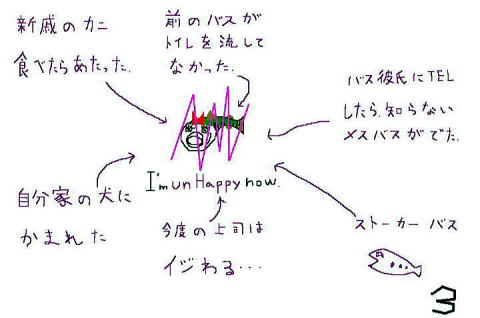 新戚のカニ
食べたらあたった.
前のバスが
トイレを流して
なかった.
バス彼氏にTEL
したら.知らない
メスバスがでた.
I'm un Happy now.
自分家の犬に
かまれた
今度の上司は
イジわる・・・
ストーカー バス
3